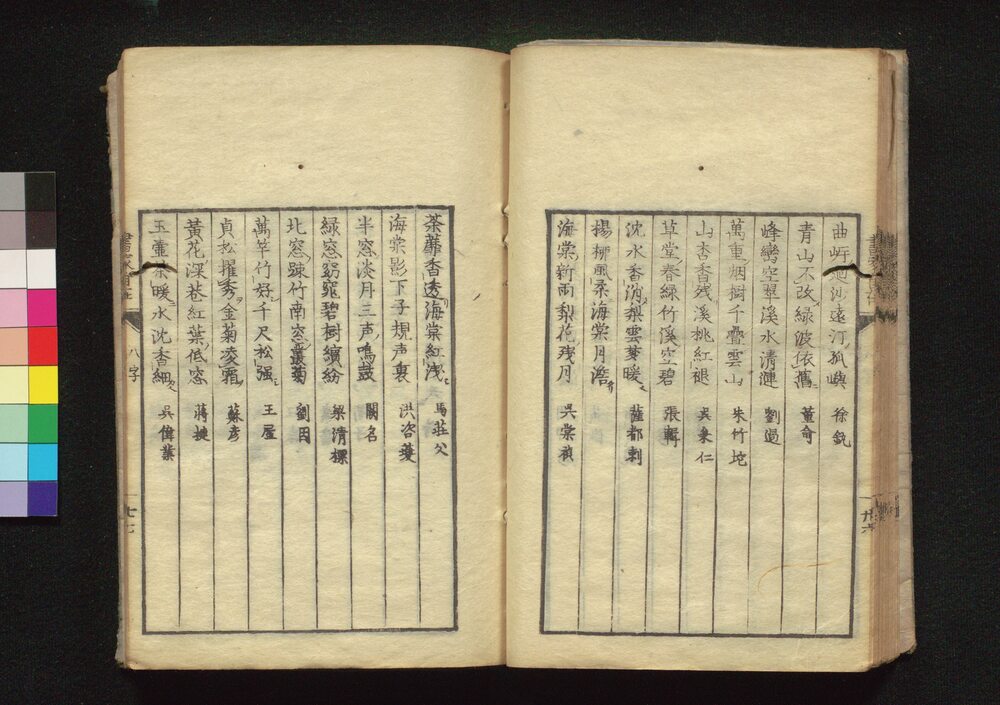 曲㠊 沙遠汀孤嶼 徐釚
青山不改緑波依舊 董俞
峰巒空翠溪水清漣 劉過
萬重烟樹千疊雲山 朱竹垞
山杏香残溪桃紅褪 吳秉仁
草堂春緑竹溪空碧 張輯
沈水香消梨雲夢暖 薩都剌
楊柳風柔海棠月澹 
海棠新雨梨花残月 吳棠禎
荼蘼香透海棠紅浅 馬莊父
海棠影下子規声裏 洪咨夔
半窓淡月三声鳴鼓 闕名
緑窓窈窕碧樹繽紛 梁清標
北窓疎竹南窓叢菊 劉因
萬竿竹好千尺松強 王屋
貞松擢秀金菊凌霜 蘇彦
黄花深巷紅葉低窓 蔣捷
玉壷茶暖水沈香細 吳偉業
八字
廿六